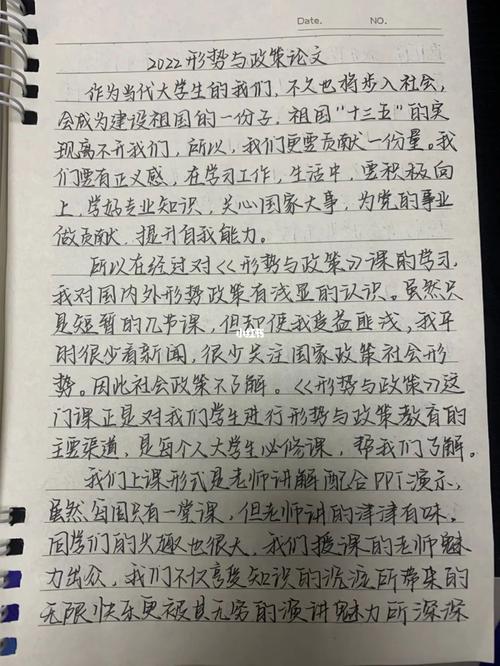 Date.    NO.
2022形势与政策论文
作为当代大学生的我们，不久也将步入社会，
会成为建设祖国的一份子，祖国"十三五"的实
现离不开我们，所以，我们更要贡献一份量。我
们要有正义感，在学习工作，生活中，要积极向
上，学好专业知识，关心国家大事，为党的事业
做贡献，提升自我能力。
所以在经过对《《形势与政策》》课的学习，
我对国内外形势政策有浅显的认识。虽然只
是短暂的几节课，但却使我受益匪浅，我平
时很少看新闻，很少关注国家政策社会形
势。因此社会政策不了解。《《形势与政策》》这
门课正是对我们学生进行形势与政策教育的
主要渠道，是每个人大学生必修课，帮我们了解。
我们上课形式是老师讲解配合PPT演示，
虽然每周只有一堂课，但老师讲的津津有味，
同学们的兴趣也很大，我们授课的老师魅
力出众，我们不仅享受知识的沉淀所带来的
无限快乐更被其无穷的演讲魅力所深深
小红书